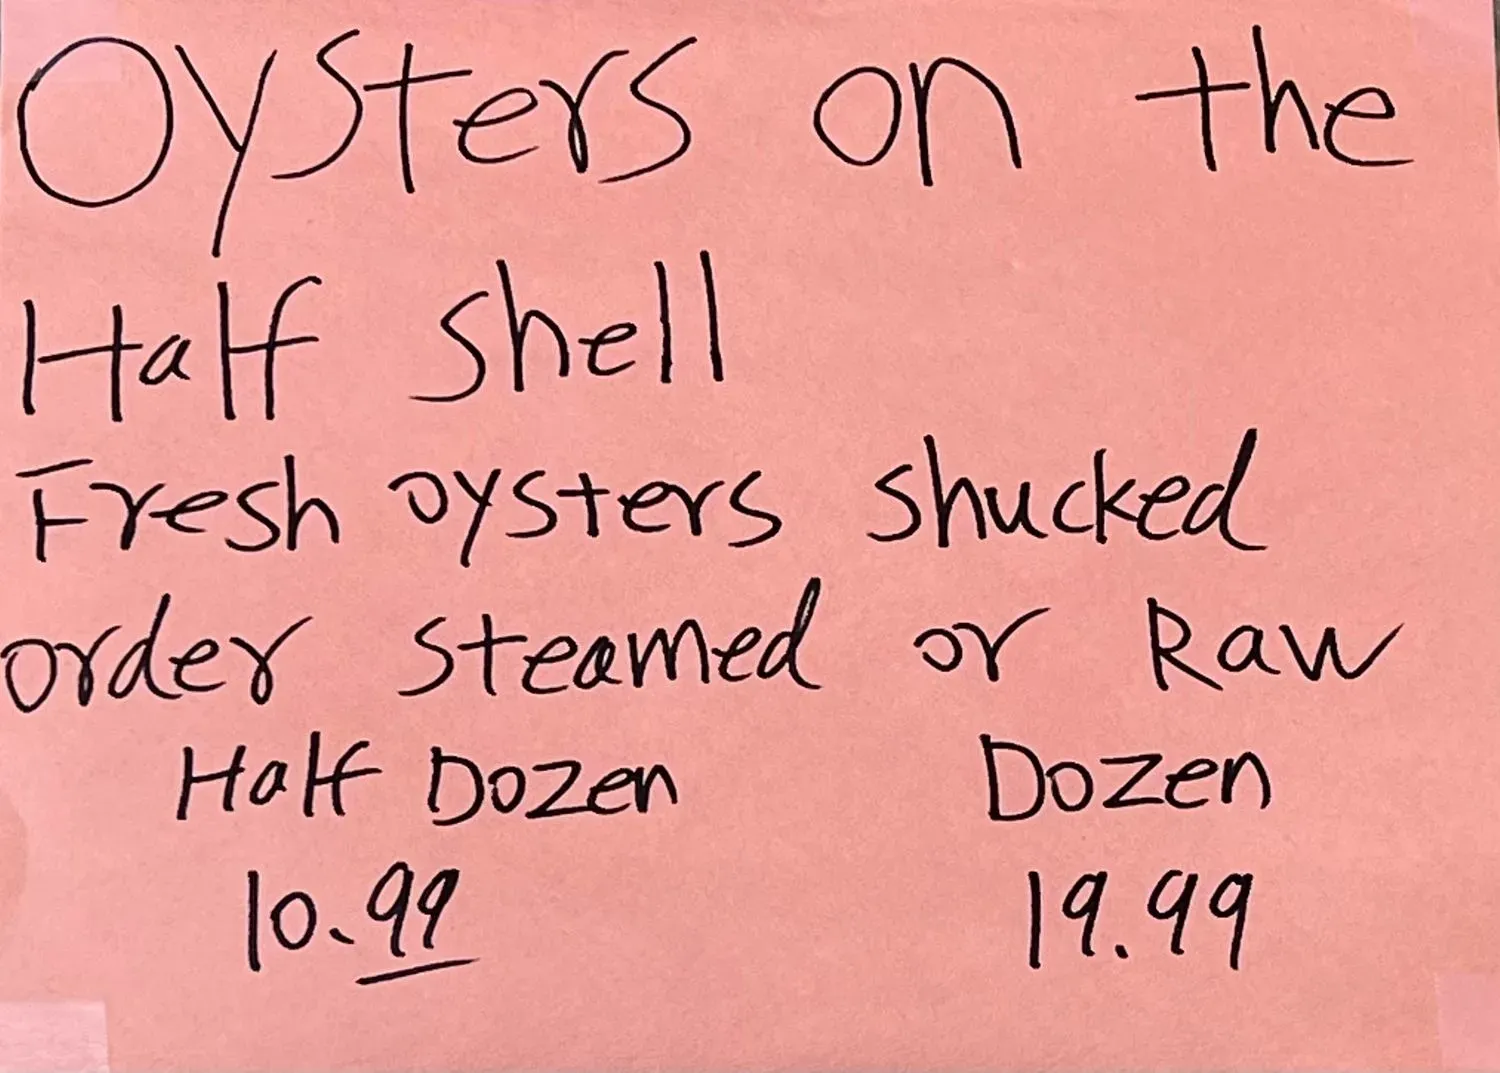 Oysters on the
Half shell
Fresh oysters shucked
order steamed or Raw
Half Dozen Dozen
10.99 19.99